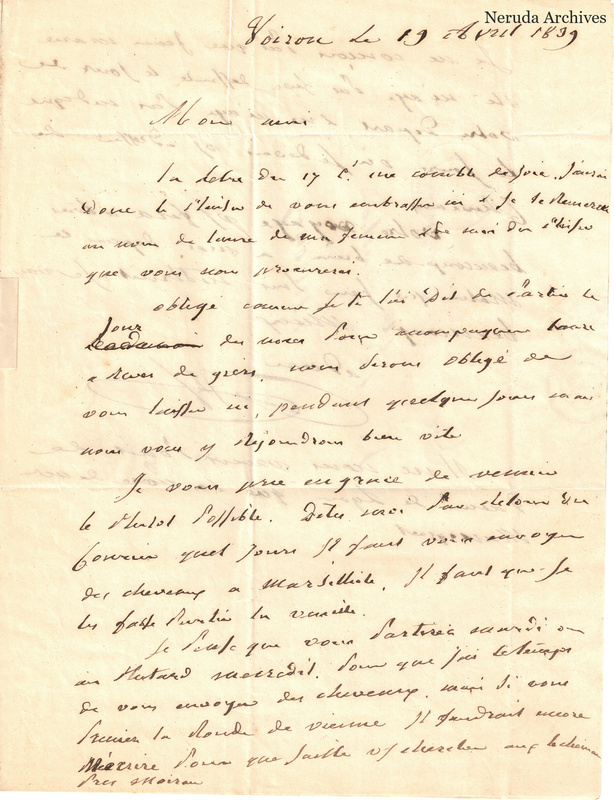 Neruda Archives
Voiron le 19 Avril 1839
Mon ami
ta lettre du 17 Ct. me comble de joie. J'aurai
Donc le Plaisir de vous embrasser ici & je te Remercie
au nom de Laure de ma femme & de moi du Plaisir
que vous nous procurerai.
obligé comme je te l'ai Dit de Partir le
Jour
des noces Pour accompagner Laure
a Rives de grès, nous serons obligé de
vous laisser ici, pendant quelques jours mais
nous vous y Rejoindrons bien vite
Je vous prie en grace de venir
le Plutot Possible. Dites moi Par Retour du
Courrier quel Jours Il faut vous envoyer
des chevaux a Il faut que Je
les fasse Partir la veille.
Je Pense que vous Partirez mardi ou
au Plutard mercredi. Pour que J'ai le temps
de vous envoyer des chevaux, mais si vous
Prenier la Route de vienne Il faudrait encore
M'écrire Pour que J'aille vs chercher
Pres Moirans